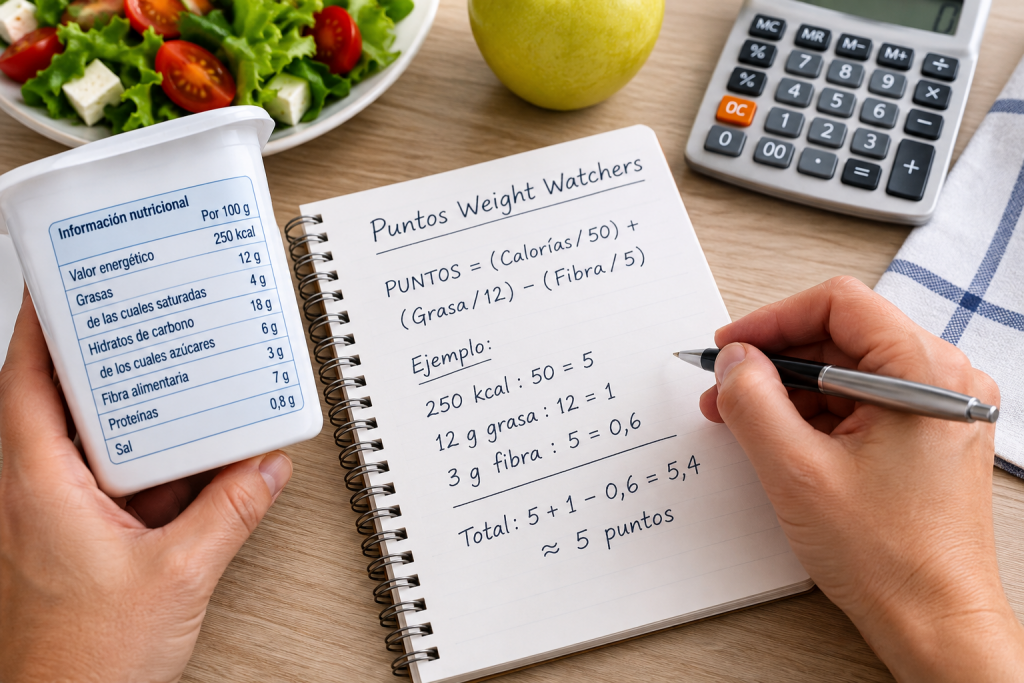 Información nutricional
Por 100 g
Valor energético 250 kcal
Grasas 12 g
de las cuales saturadas 4 g
Hidratos de carbono 18 g
de los cuales azúcares 6 g
Fibra alimentaria 3 g
Proteínas 7 g
Sal 0,8 g
Puntos Weight Watchers
PUNTOS = (Calorías / 50) +
(Grasa / 12) – (Fibra / 5)
Ejemplo:
250 kcal : 50 = 5
12 g grasa : 12 = 1
3 g fibra : 5 = 0,6
Total: 5 + 1 – 0,6 = 5,4
≈ 5 puntos
0
MC MR M– M+ ÷
% 7 8 9 ×
% 4 5 6 –
OC 1 2 3 +
0 00 · =